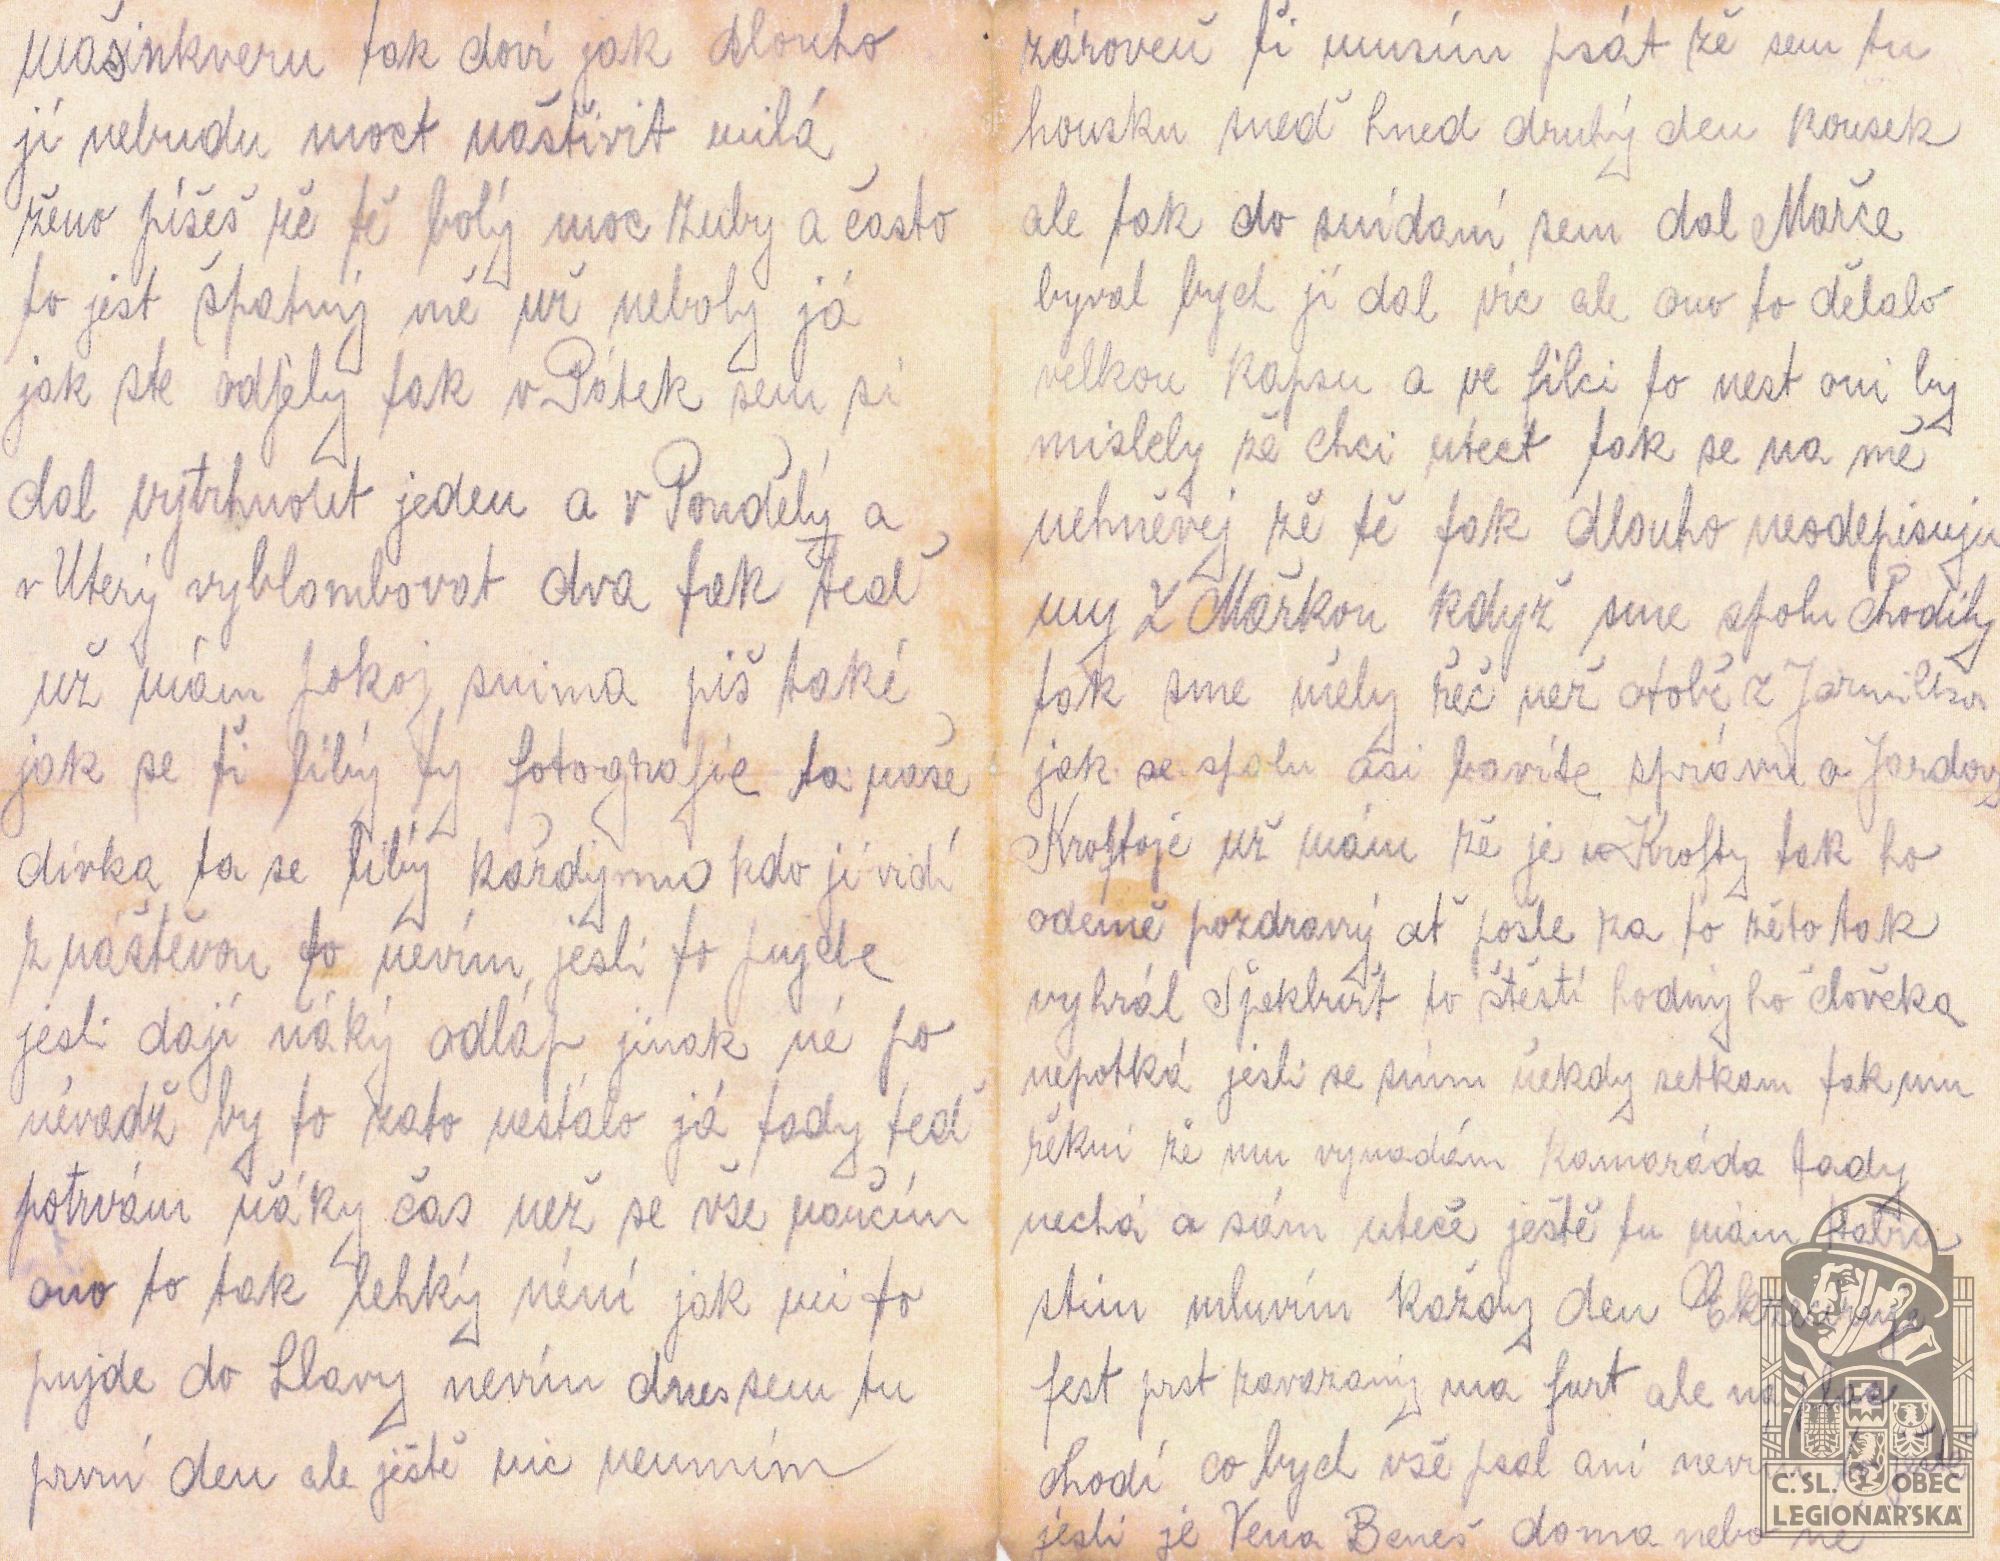 mašinkveru tak doví jak dlouho
jí nebudu moct náštívit milá
ženo píšeš žě tě bolý moc zuby a často
to jest špatný mě už neboly já
jak ste odjely tak v Pátek sem si
dal vytrhnout jeden a v Pondělý a
v Uterý vyblombovat dva tak teď
už mám pokoj snima piš také
jak se ti libý ty fotografie ta naše
dívka ta se libý každýmu kdo jí vidí
z náštěvou to nevím jesli to pujde
jesli dají ňáký odláp jinak né po
névadž by to zato nestálo já tady teď
potrvám ňáky čas než se vše naučím
ono to tak lehký néní jak mi to
pujde do hlavy nevím dnes sem tu
první den ale ještě nic neumím
zároveň ti musím psát žě sem tu
housku sněd hned druhý den kousek
ale tak do snídaní sem dal Mařce
byval bych jí dal víc ale ono to dělalo
velkou kapsu a ve filci to nest oni by
mislely žě chci utect tak se na mě
nehněvej žě tě tak dlouho neodepisuju
my z Mařkou když sme spolu Chodily
tak sme měly řéč než otobě z Jarmilkou
jak se spolu asi bavíte správu o Jardovy
Kroftoje už mám žě je u Krofty tak ho
odemě pozdravuj ať pošle za to žéto tak
vyhrál Špekbuřt to štěstí hodnýho člověka
nepotká jesli se sním někdy setkam tak mu
řékni žě mu vynadám kamaráda tady
nechá a sám uteče ještě tu mám
stím mluvím každy den
fest prst zavazaný ma furt ale na
chodí co bych vše psal ani
jesli je Vena Beneš doma nebo ne
Č. SL. OBEC
LEGIONÁŘSKÁ